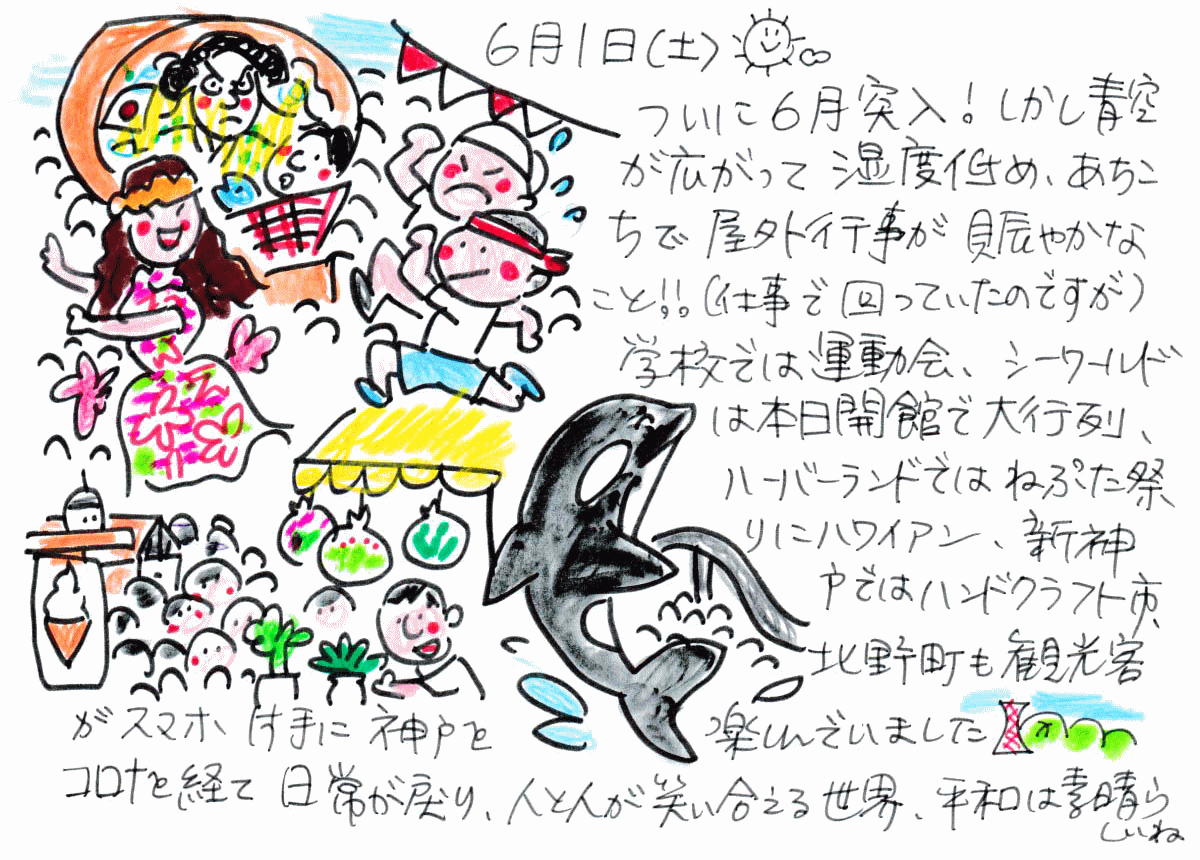 6月1日(土)
ついに6月突入!しかし青空
が広がって湿度低め、あちこ
ちで屋外行事が賑やかな
こと!!(仕事で回っていたのですが)
学校では運動会、シーワールド
は本日開館で大行列、
ハーバーランドではねぷた祭
りにハワイアン、新神
戸ではハンドクラフト市、
北野町も観光客
がスマホ片手に神戸を
楽しんでいました
コロナを経て日常が戻り、人と人が笑い合える世界、平和は素晴ら
しいね